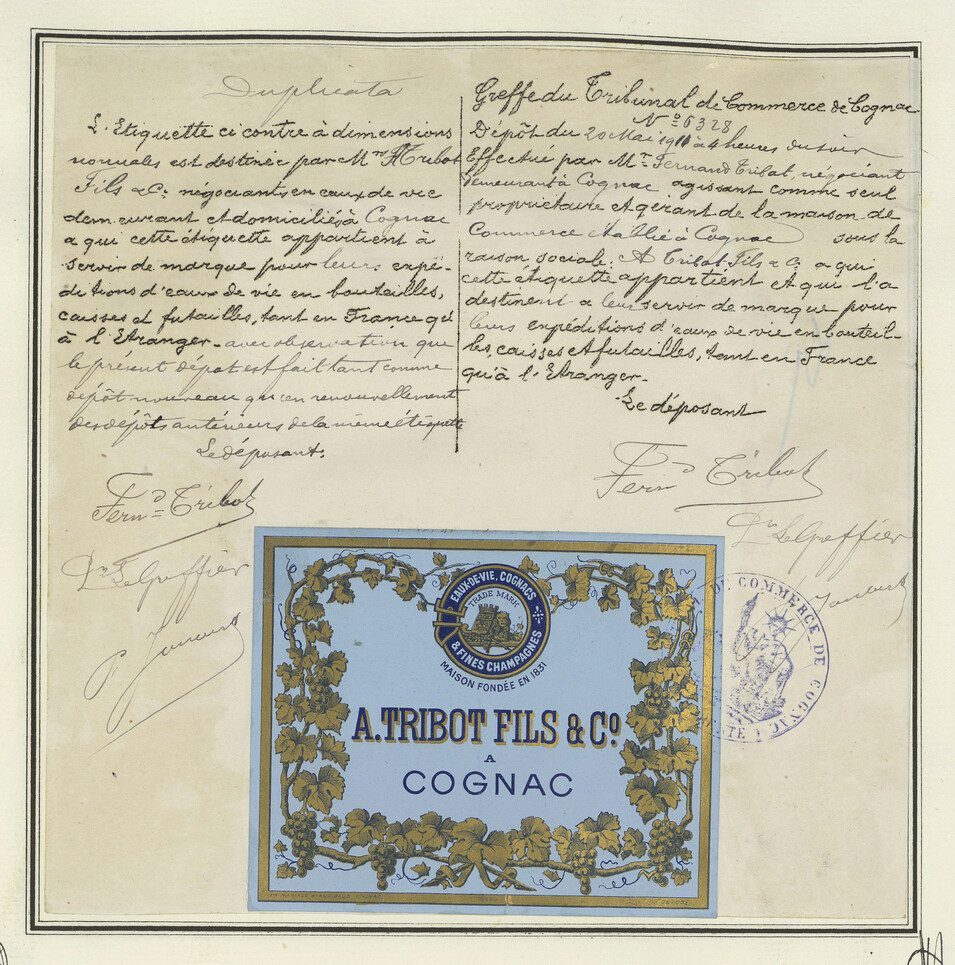 Duplicata
L'Etiquette ci contre à dimensions
normales est destinée par Mrs A Tribot
Fils & Co négociants en eaux de vie
demeurant et domiciliés à Cognac
a qui cette étiquette appartient à
servir de marque pour leurs expé-
ditions d'eaux de vie en bouteilles,
caisses et futailles, tant en France qu'
à l'Etranger - avec observation que
le présent dépot est fait tant comme
dépôt nouveau qu'en renouvellement
des dépôts antérieurs de la même étiquette
Le déposant.
Fernd Tribot
Le Greffier
Greffe du Tribunal de Commerce de Cognac
No 6328
Dépôt du 20 Mai 1911 à 4 heures du soir
Effectué par Mr Fernand Tribot, négociant
demeurant à Cognac agissant comme seul
propriétaire et gérant de la maison de
Commerce établie à Cognac sous la
raison sociale: A Tribot Fils & Co a qui
cette étiquette appartient et qui l'a
destinent a leur servir de marque pour
leurs expéditions d'eaux de vie en bouteil-
les, caisses et futailles, tant en France
qu'à l'Etranger -
Le déposant
Fernd Tribot
Le Greffier
EAUX-DE-VIE, COGNACS
TRADE MARK
& FINES CHAMPAGNES
MAISON FONDÉE EN 1831
A. TRIBOT FILS & Co
A
COGNAC
DE COMMERCE DE COGNAC